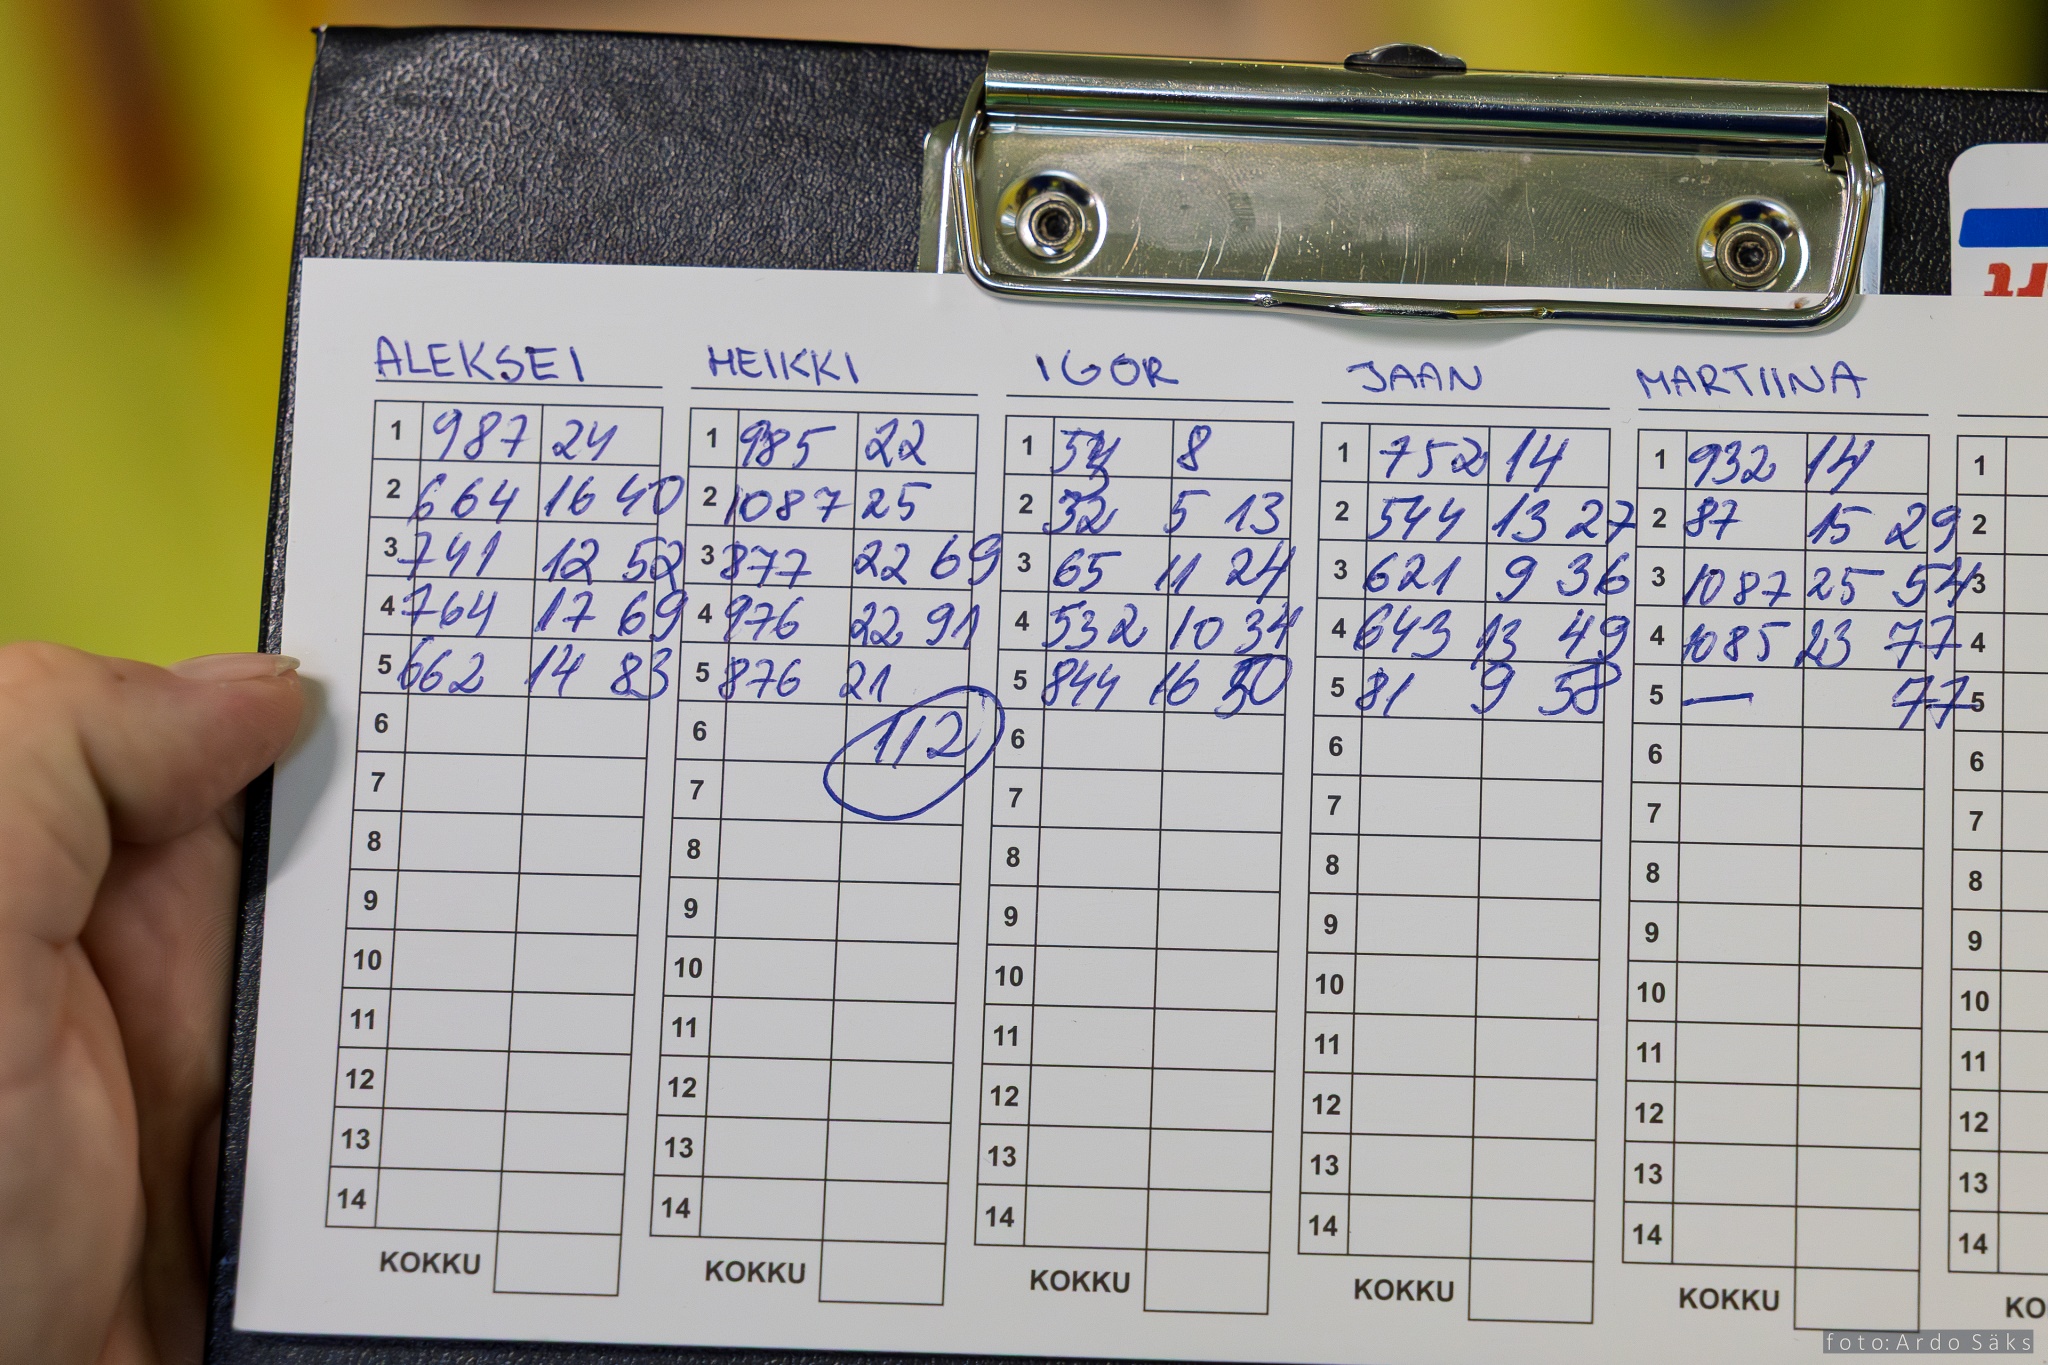 ALEKSEI HEIKKI IGOR JAAN MARTIINA
1 987 24 1 985 22 1 8 1 752 14 1 932 14 1
2 664 16 40 2 1087 25 2 32 5 13 2 544 13 27 2 87 15 29 2
3 741 12 52 3 877 22 69 3 65 11 24 3 621 9 36 3 1087 25 54 3
4 764 17 69 4 976 22 91 4 532 10 34 4 643 13 49 4 1085 23 77 4
5 662 14 83 5 876 21 5 844 16 50 5 81 9 58 5 — 77 5
6 6 112 6 6 6 6
7 7 7 7 7 7
8 8 8 8 8 8
9 9 9 9 9 9
10 10 10 10 10 10
11 11 11 11 11 11
12 12 12 12 12 12
13 13 13 13 13 13
14 14 14 14 14 14
KOKKU KOKKU KOKKU KOKKU KOKKU KO
foto: Ardo Säks